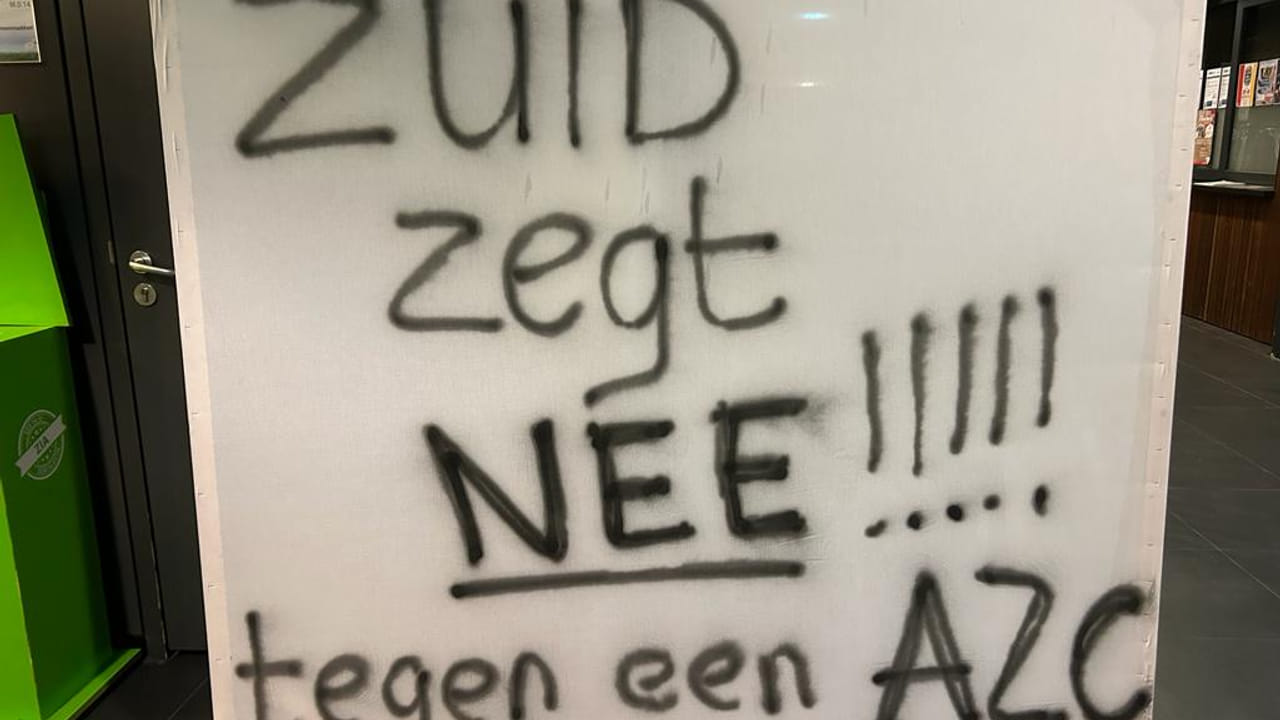 ZUID
zegt
NEE !!!!!
tegen een AZC
ZIA